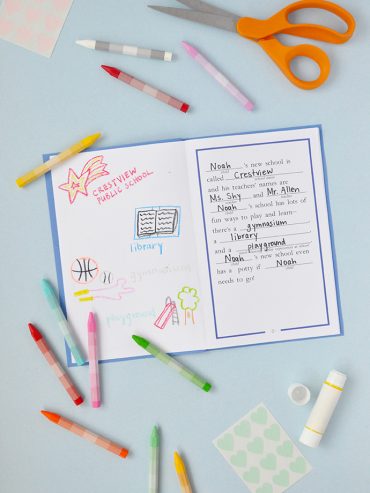 CRESTVIEW
PUBLIC SCHOOL
library
gymnasium
playground
Noah 's new school is
called Crestview
and his teachers' names are
Ms. Shy and Mr. Allen
Noah 's school has lots of
fun ways to play and learn–
there's a gymnasium
a library
and a playground
Noah 's new school even
has a potty if Noah
needs to go!